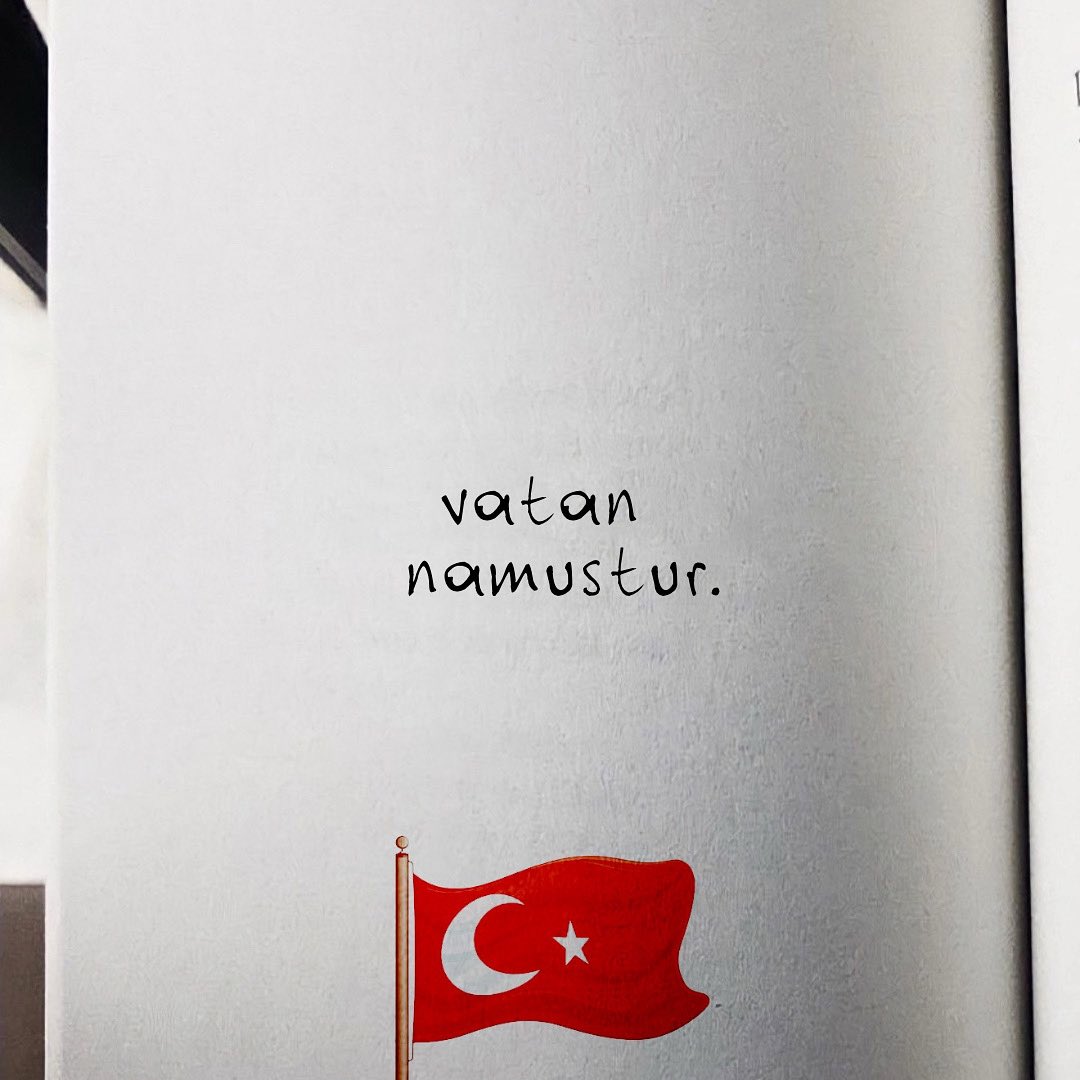 vatan
namustur.